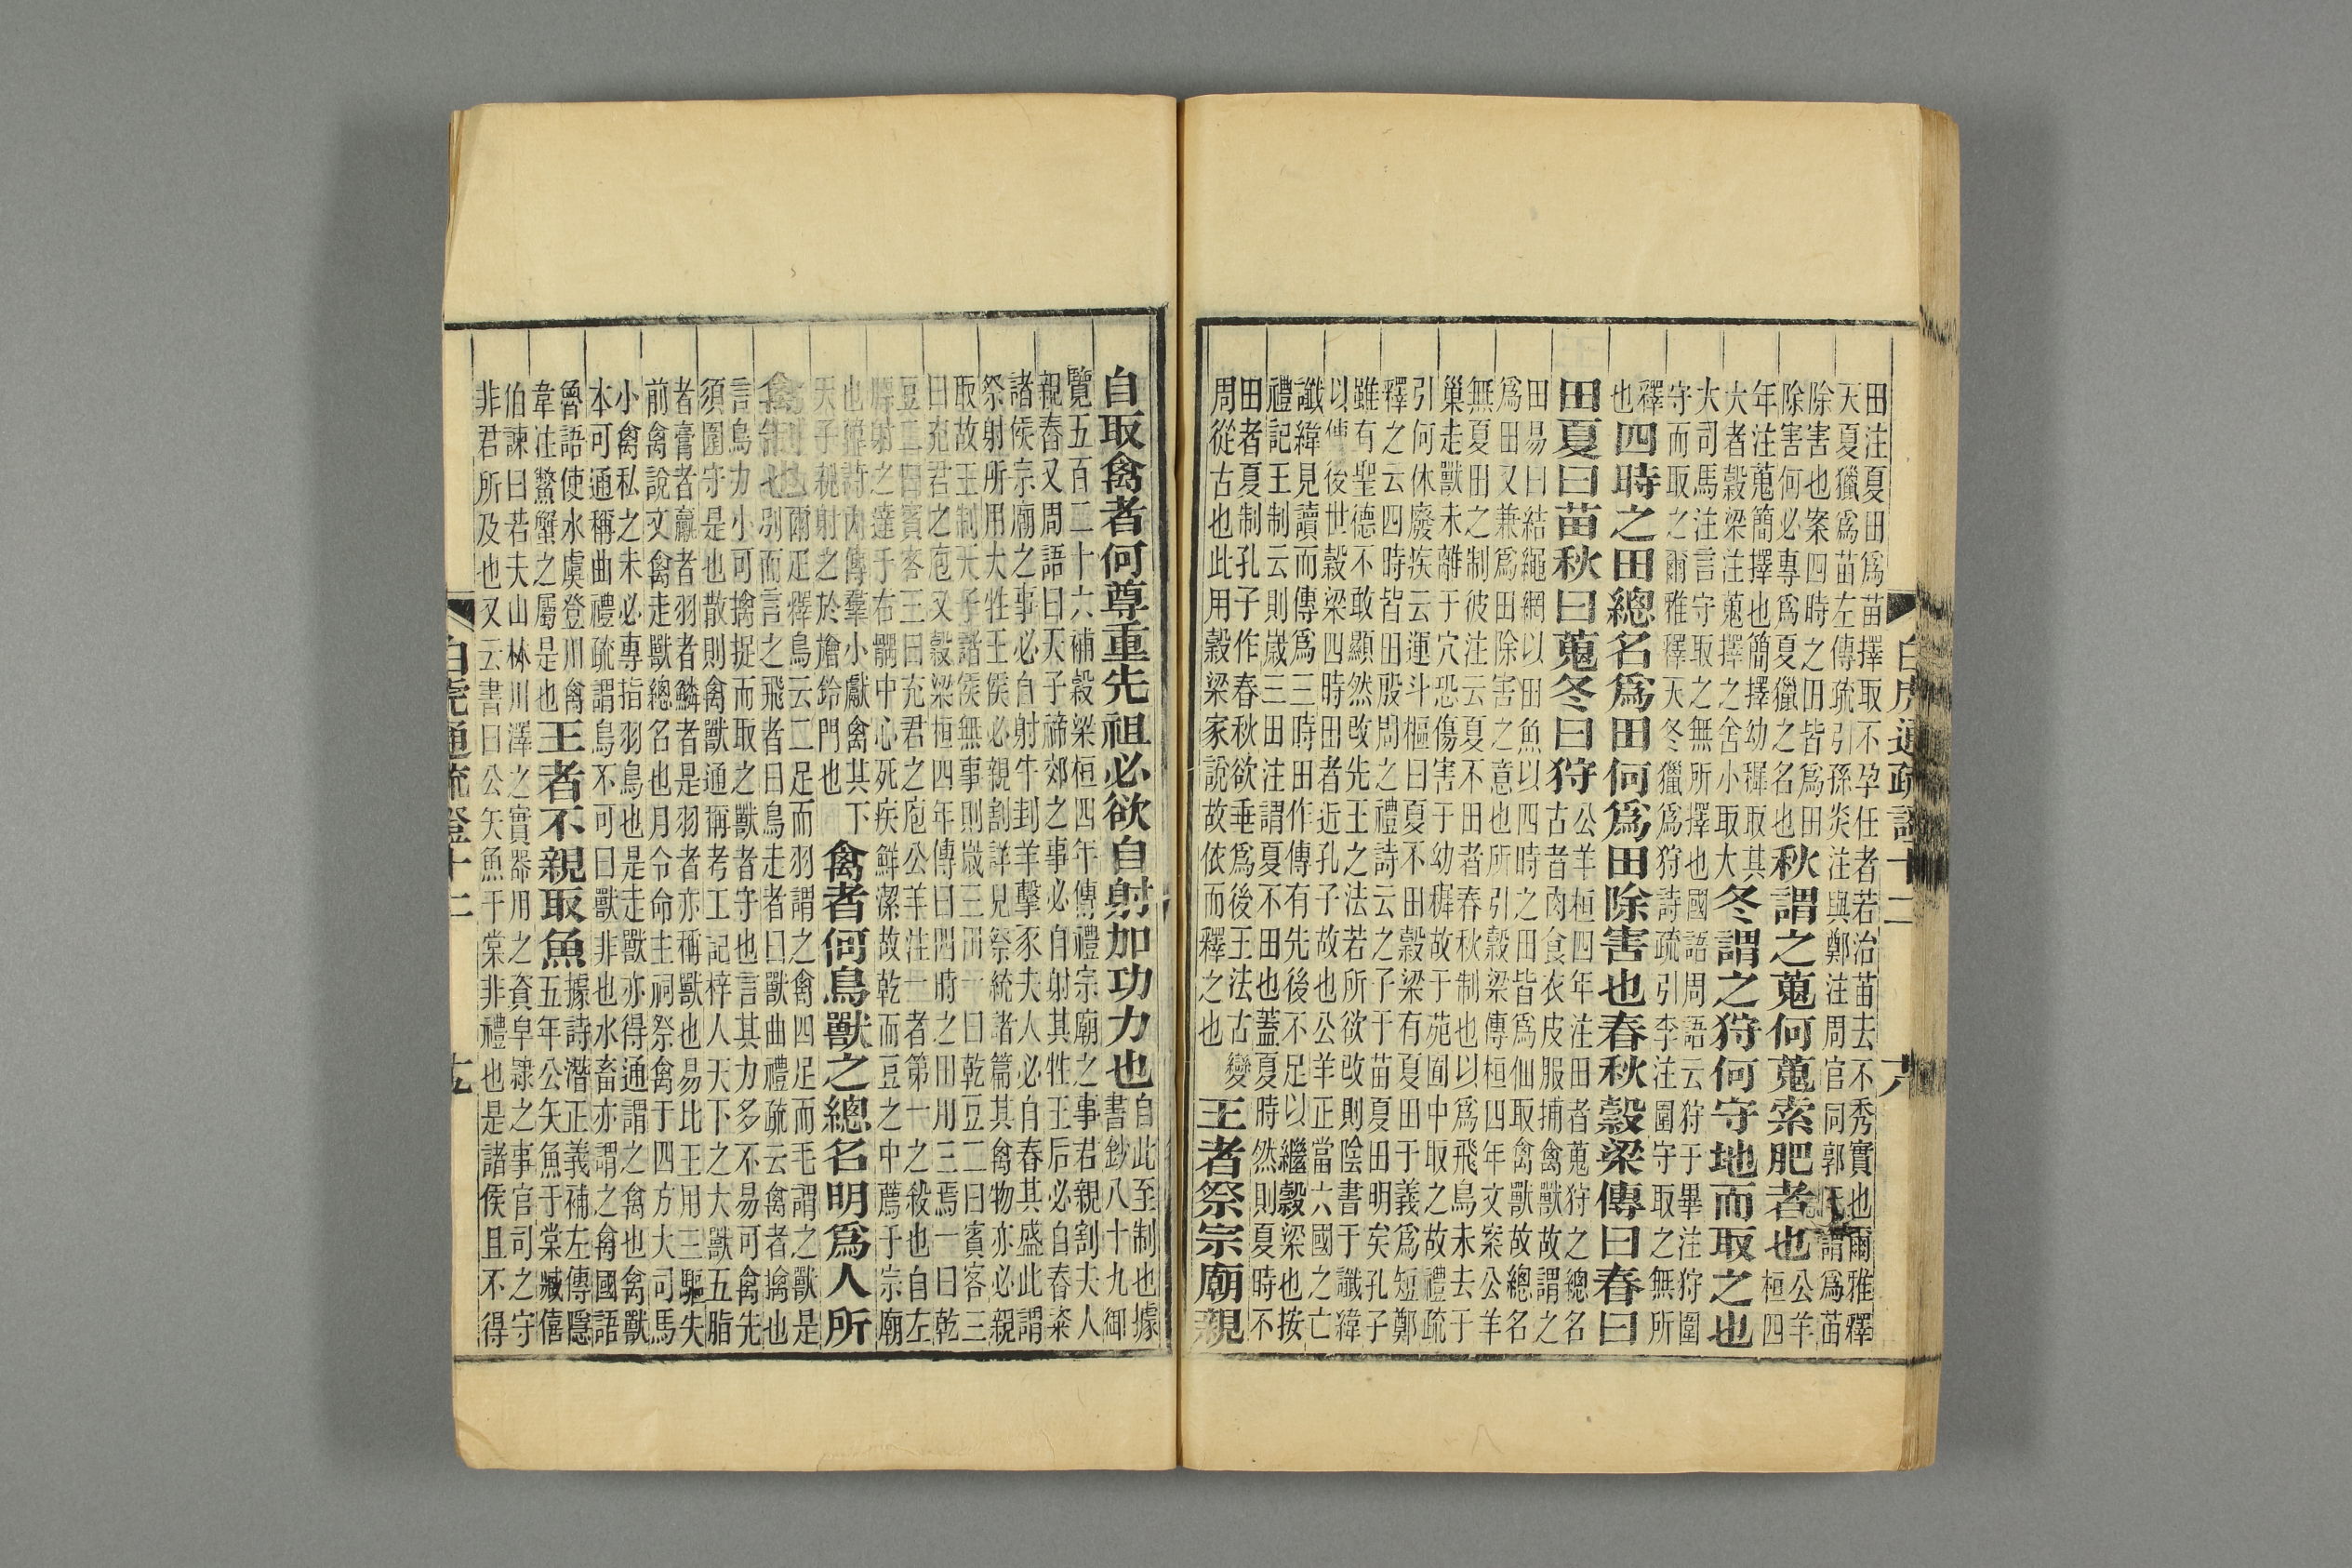 田注夏田爲苗擇取不孕任者若治苗去不秀實也爾雅釋
天夏獵爲苗左傳疏引孫炎注與鄭注周官同郭謂爲苗
除害也案四時之田皆爲田
除害何必專爲夏獵之名也
秋謂之蒐何蒐索肥者也
公羊
桓四
年注蒐簡擇也簡擇幼穉取其
大者穀梁注蒐擇之舍小取大
冬謂之狩何守地而取之也
大司馬注言守取之無所擇也國語周語云狩于畢注狩圍
守而取之爾雅釋天冬獵爲狩詩疏引李注圍守取之無所
釋
也
四時之田總名爲田何爲田除害也春秋穀梁傳曰春曰
田夏曰苗秋曰蒐冬曰狩
公羊桓四年注田者蒐狩之總名
古者肉食衣皮服捕禽獸故謂之
田易曰結繩網以田魚以四時之田皆爲仙取禽獸故總名
爲田又兼爲田除害之意也所引穀梁傳桓四年文案公羊
無夏田之制彼注云夏不田者春秋制也以爲飛鳥未去于
巢走獸未離于穴恐傷害于幼穉故于苑囿中取之故禮疏
引何休廢疾云運斗樞曰夏不田穀梁有夏田于義爲短鄭
釋之云四時皆田殷周之禮詩云之子于苗夏田明矣孔子
雖有聖德不敢顯然改先王之法若所欲改則陰書于讖緯
以傳後世穀梁四時田者近孔子故也公羊正當六國之亡
讖緯見讀而傳爲三時田作傳有先後不足以繼穀梁也按
禮記王制云則歲三田注謂夏不田也蓋夏時然則夏時不
田者夏制孔子作春秋欲垂爲後王法古變
周從古也此用穀梁家說故依而釋之也
王者祭宗廟親
白虎通疏證十二
六
自取禽者何尊重先祖必欲自射加功力也
自此至制也據
書鈔八十九御
覽五百二十六補穀梁桓四年傳禮宗廟之事君親割夫人
親舂又周語曰天子禘郊之事必自射其牲王后必自舂粢
諸侯宗廟之事必自射牛刲羊擊豕夫人必自舂其盛此謂
祭射所用大牲王侯必親割詳見祭統諸篇其禽物亦必親
取故王制天子諸侯無事則歲三田一曰乾豆二曰賓客三
曰充君之庖又穀梁桓四年傳曰四時之田用三焉一曰乾
豆二曰賓客三曰充君之庖公羊注一者第一之殺也自左
膘射之達于右髃中心死疾鮮潔故乾而豆之中薦于宗廟
也韓詩內傳羣小獻禽其下
天子親射之於旍鈴門也
禽者何鳥獸之總名明爲人所
禽制也
爾疋釋鳥云二足而羽謂之禽四足而毛謂之獸是
別而言之飛者曰鳥走者曰獸曲禮疏云禽者擒也
言鳥力小可擒捉而取之獸者守也言其力多不易可禽先
須圍守是也散則禽獸通稱考工記梓人天下之大獸五脂
者膏者臝者羽者鱗者是羽者亦稱獸也易比王用三驅失
前禽說文禽走獸總名也月令命主祠祭禽于四方大司馬
小禽私之未必專指羽鳥也是走獸亦得通謂之禽也禽獸
本可通稱曲禮疏謂鳥不可曰獸非也水畜亦謂之禽國語
魯語使水虞登川禽
韋注鱉蟹之屬是也
王者不親取魚
據詩潛正義補左傳隱
五年公矢魚于棠臧僖
伯諫曰若夫山林川澤之實器用之資皁隸之事官司之守
非君所及也又云書曰公矢魚于棠非禮也是諸侯且不得
白虎通疏證十二